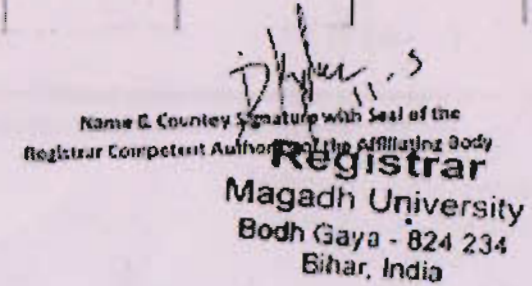 Name & Country Signature with Seal of the
Registrar Competent Authority of the Affiliating Body
Registrar
Magadh University
Bodh Gaya - 824 234
Bihar, India